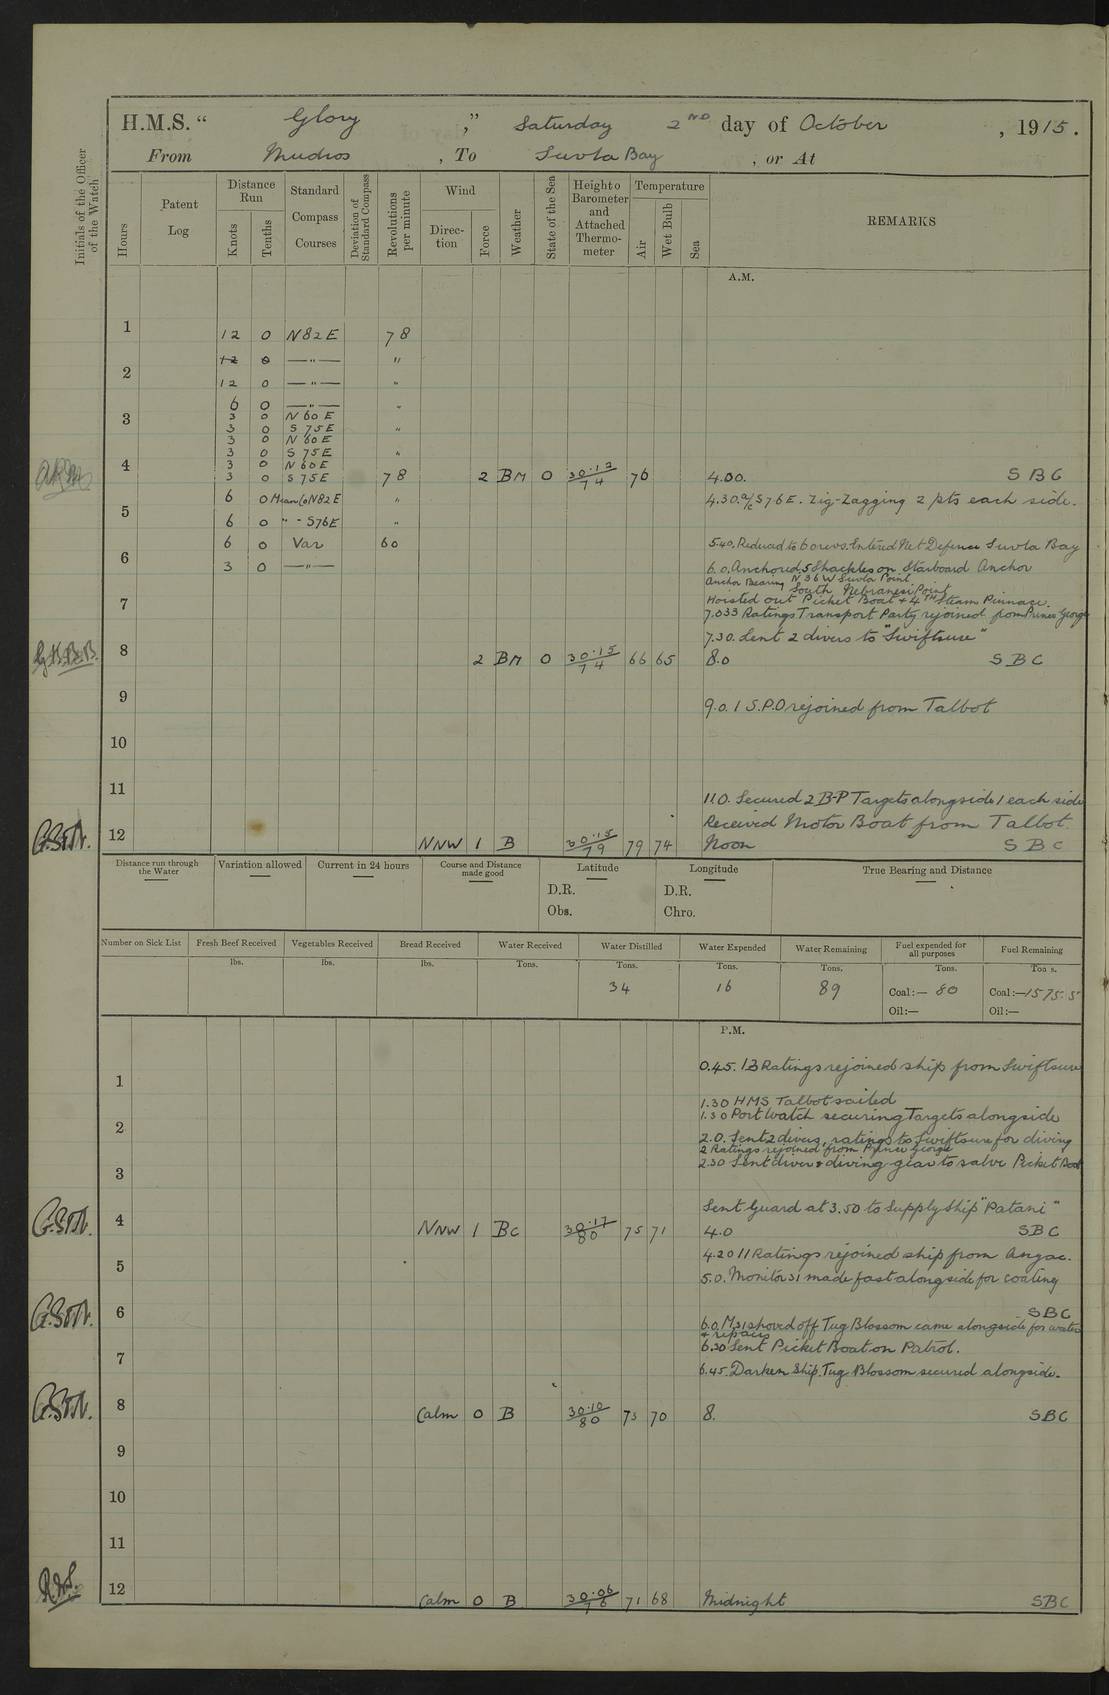 H.M.S. “ Glory ,” Saturday 2ND day of October , 1915 .
From Mudros , To Suvla Bay , or At
Initials of the Officer of the Watch
Hours
Patent Log
Distance Run
Knots
Tenths
Standard Compass Courses
Deviation of Standard Compass
Revolutions per minute
Wind
Direction
Force
Weather
State of the Sea
Height of Barometer and Attached Thermometer
Temperature
Air
Wet Bulb
Sea
REMARKS
A.M.
1
12 0 N82E 78
12 0 —"— "
2
12 0 —"— "
6 0 —"— "
3
3 0 N 60 E
3 0 S 75 E "
3 0 N 60 E
3 0 S 75 E "
4
3 0 N 60 E
3 0 S 75 E 78 2 BM 0 30.12/74 76 4.00. SBC
6 0 Mean Co N82E " 4.30. a/c S76E. Zig-Zagging 2 pts each side.
5
6 0 " - S76E "
6 0 Var 60 5.40. Reduced to 60 revs. Entered Net Defence Suvla Bay
6
3 0 —"— 6.0. Anchored, 5 Shackles on Starboard Anchor
Anchor Bearing N 36 W Suvla Point
South Nebranesi Point
7
Hoisted out Picket Boat + 4TH Steam Pinnace.
7.0 33 Ratings Transport Party rejoined from Prince George
7.30. Sent 2 divers to "Swiftsure"
8
2 BM 0 30.15/74 66 65 8.0 SBC
9
9.0. 1 S.P.O rejoined from Talbot
10
11
11.0. Secured 2 B-P Targets alongside 1 each side
Received Motor Boat from Talbot.
12
NNW 1 B 30.15/79 79 74 Noon SBC
Distance run through the Water
Variation allowed
Current in 24 hours
Course and Distance made good
Latitude
D.R.
Obs.
Longitude
D.R.
Chro.
True Bearing and Distance
Number on Sick List
Fresh Beef Received
lbs.
Vegetables Received
lbs.
Bread Received
lbs.
Water Received
Tons.
Water Distilled
Tons.
34
Water Expended
Tons.
16
Water Remaining
Tons.
89
Fuel expended for all purposes
Tons.
Coal :— 80
Oil :—
Fuel Remaining
Tons.
Coal :—1575.5
Oil :—
P.M.
0.45. 13 Ratings rejoined ship from Swiftsure
1
1.30 HMS Talbot sailed
1.30 Port Watch securing Targets alongside
2
2.0. Sent 2 divers, ratings to Swiftsure for diving
2 Ratings rejoined from Prince George
2.30 Sent diver & diving gear to salve Picket Boat
3
Sent Guard at 3.50 to Supply Ship "Patani"
4
NNW 1 BC 30.17/80 75 71 4.0 SBC
4.20 11 Ratings rejoined ship from Anzac.
5
5.0. Monitor 31 made fast alongside for coaling
6
SBC
6.0. M31 shoved off Tug Blossom came alongside for water
+ repairs
6.30 Sent Picket Boat on Patrol.
7
6.45. Darken Ship. Tug Blossom secured alongside.
8
Calm 0 B 30.10/80 73 70 8. SBC
9
10
11
12
Calm 0 B 30.06/76 71 68 Midnight SBC